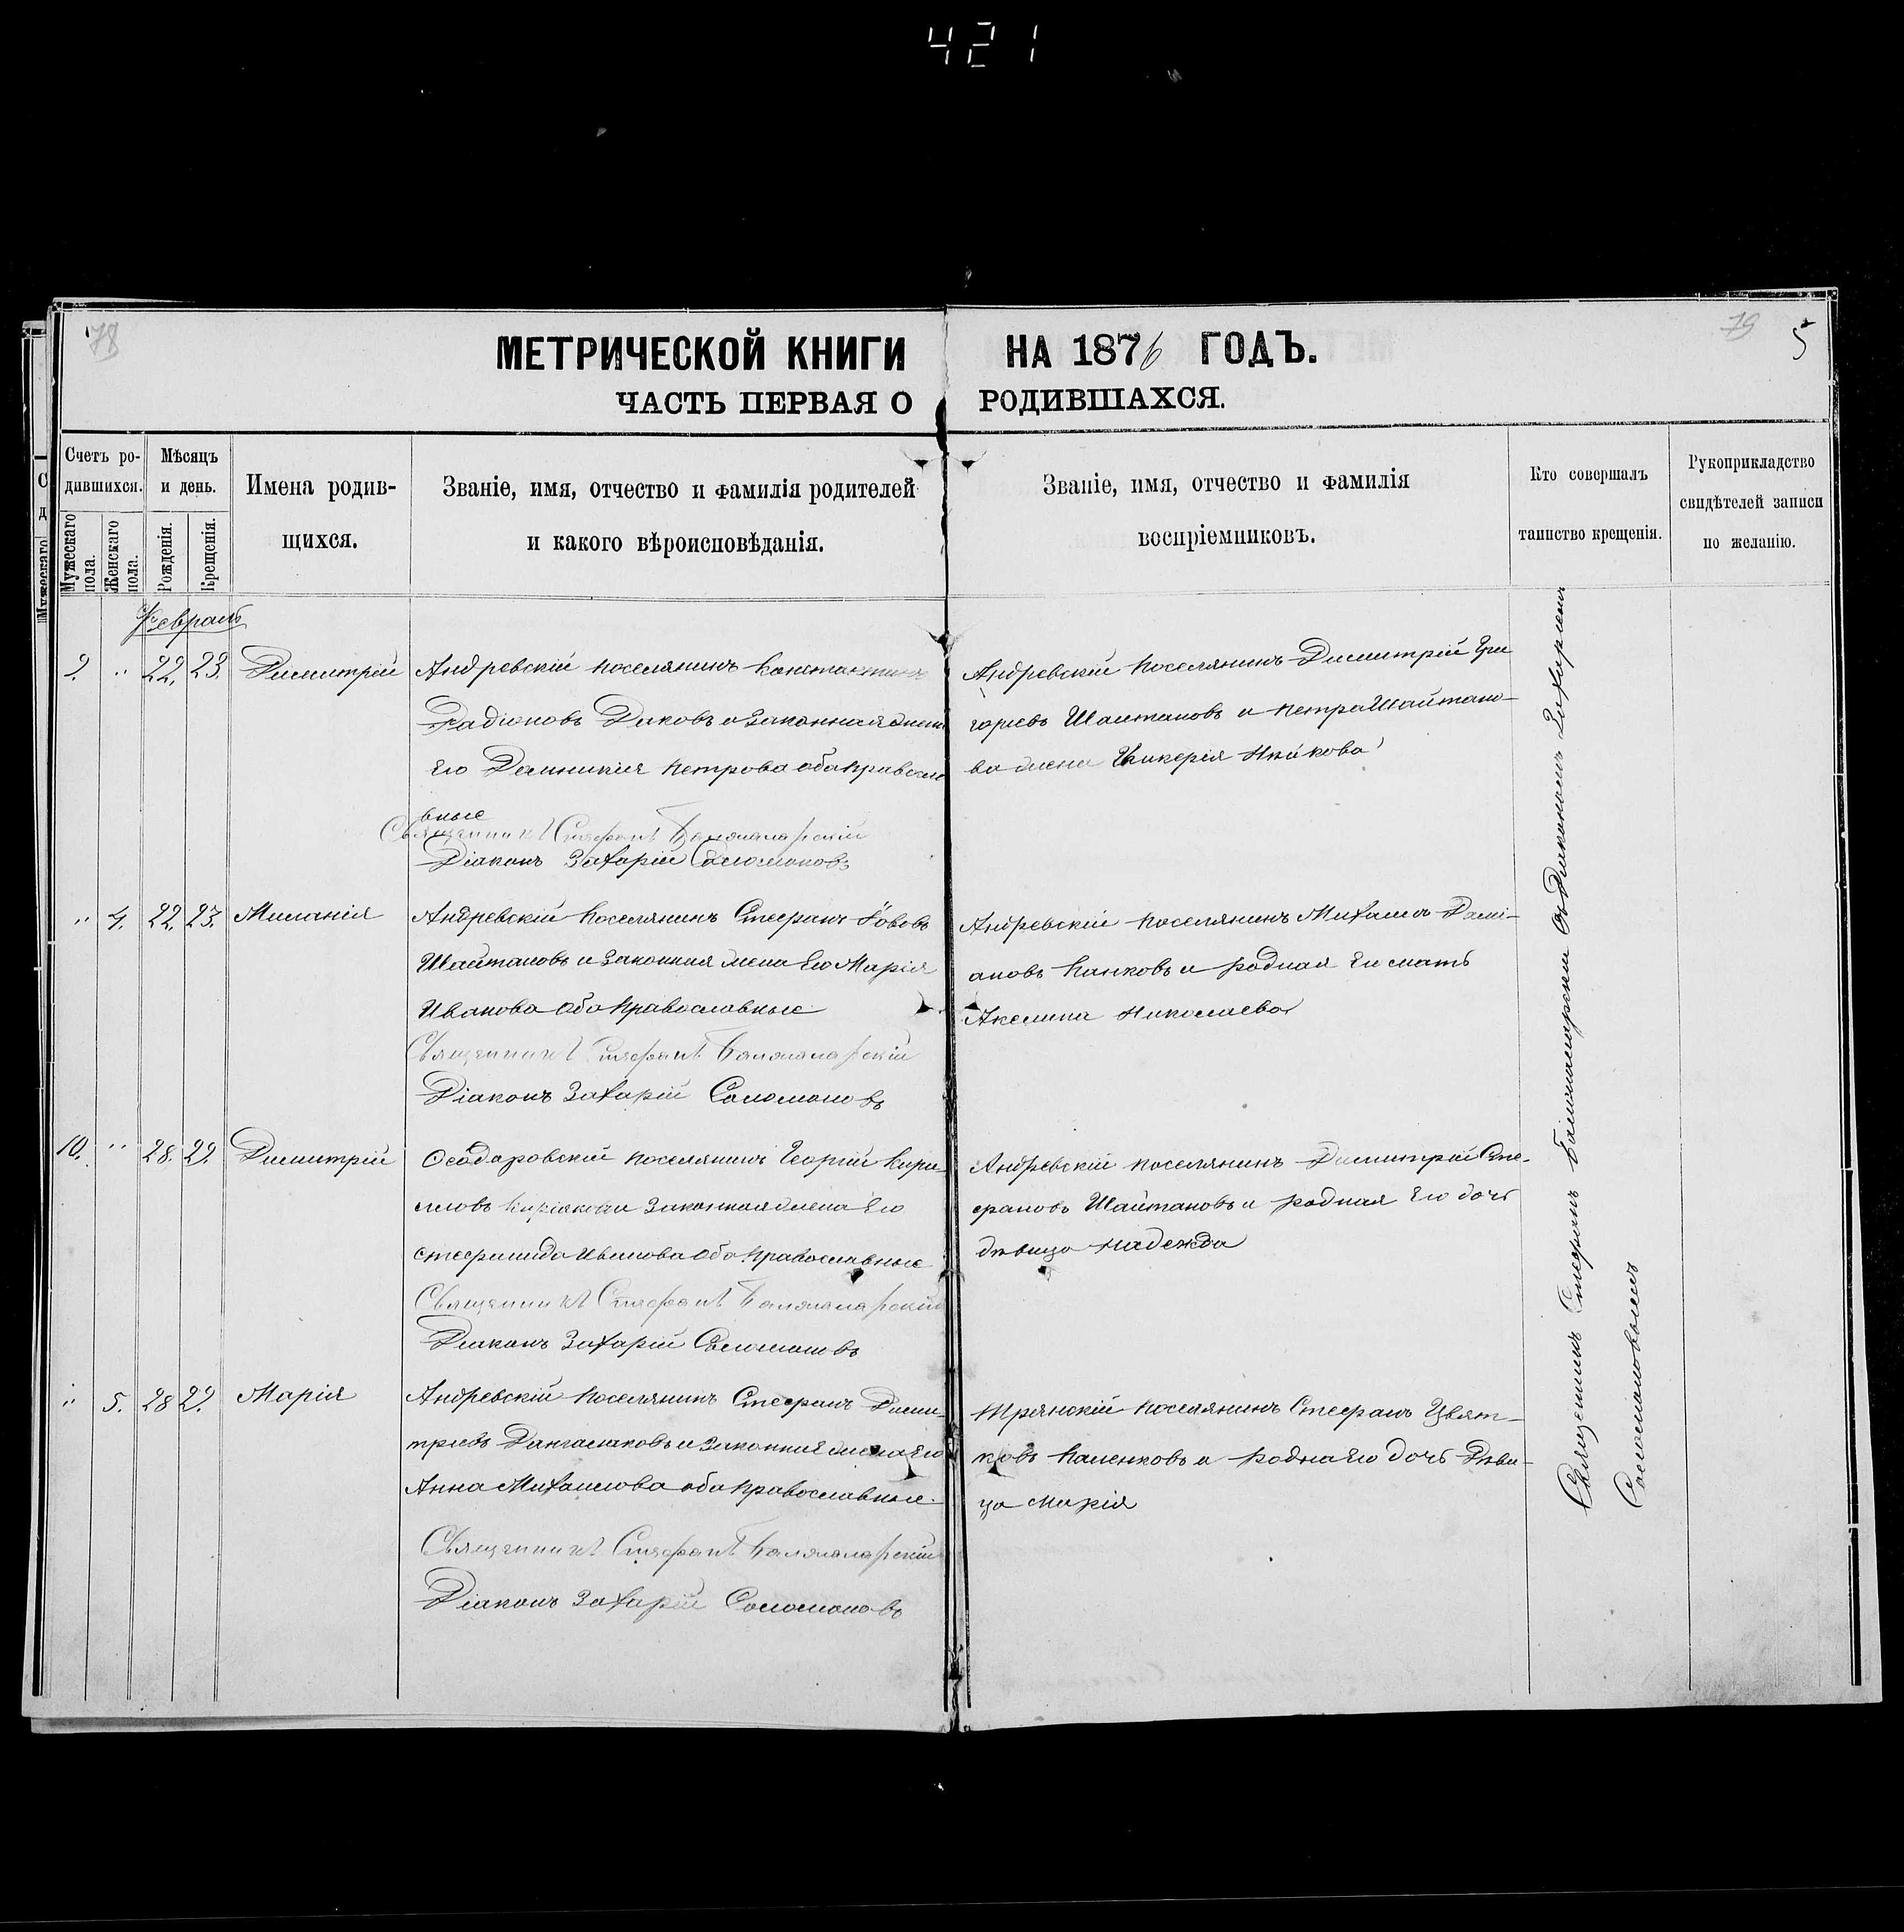 421
78
79
5
МЕТРИЧЕСКОЙ КНИГИ НА 1876 ГОДЪ.
ЧАСТЬ ПЕРВАЯ О РОДИВШАХСЯ.
Счетъ ро-
дившихся.
Мужескаго пола.
Женскаго пола.
Мѣсяцъ
и день.
Рожденія.
Крещенія.
Имена родив-
щихся.
Званіе, имя, отчество и фамилія родителей
и какого вѣроисповѣданія.
Званіе, имя, отчество и фамилія
воспріемниковъ.
Кто совершалъ
таинство крещенія.
Рукоприкладство
свидѣтелей записи
по желанію.
Февраль
9. " 22. 23. Димитрій
Андревскій поселянинъ Константинъ
Радіоновъ Диковъ и законная жена
Его Домникія Петрова оба правосла
вные
Священникъ Стефанъ
Діаконъ Захарій Соломоновъ
Андревскій поселянинъ Димитрій Гри
горіевъ Шаитановъ и Петра Шайтано-
ва жена Гликерія
" 4. 22. 23. Миланія
Андревскій Поселянинъ Стефанъ Іововъ
Шайтановъ и законная жена Его Марія
Иванова оба православные
Священникъ Стефанъ
Діаконъ Захарій Соломоновъ
Андревскій поселянинъ Михаилъ Дамі-
ановъ Панковъ и родная Его мать
Акелина Николаева
10. " 28. 29. Димитрій
Ѳеодоровскій поселянинъ Георгій Кири-
лловъ законная жена Его
Стефанида Иванова оба православные
Священникъ Стефанъ
Діаконъ Захарій Соломоновъ
Андревскій поселянинъ Димитрій Сте-
фановъ Шайтановъ и родная Его дочь
дѣвица Надежда
" 5. 28 29. Марія
Андревскій поселянинъ Стефанъ Дими-
тріевъ и законная жена Его
Анна Михаилова оба православные.
Священникъ Стефанъ
Діаконъ Захарій Соломоновъ
поселянинъ Стефанъ Цвят-
ковъ и родна Его дочь Дѣви-
ца Марія
Священникъ Стефанъ съ Діакономъ Захаріемъ
Соломоновымъ